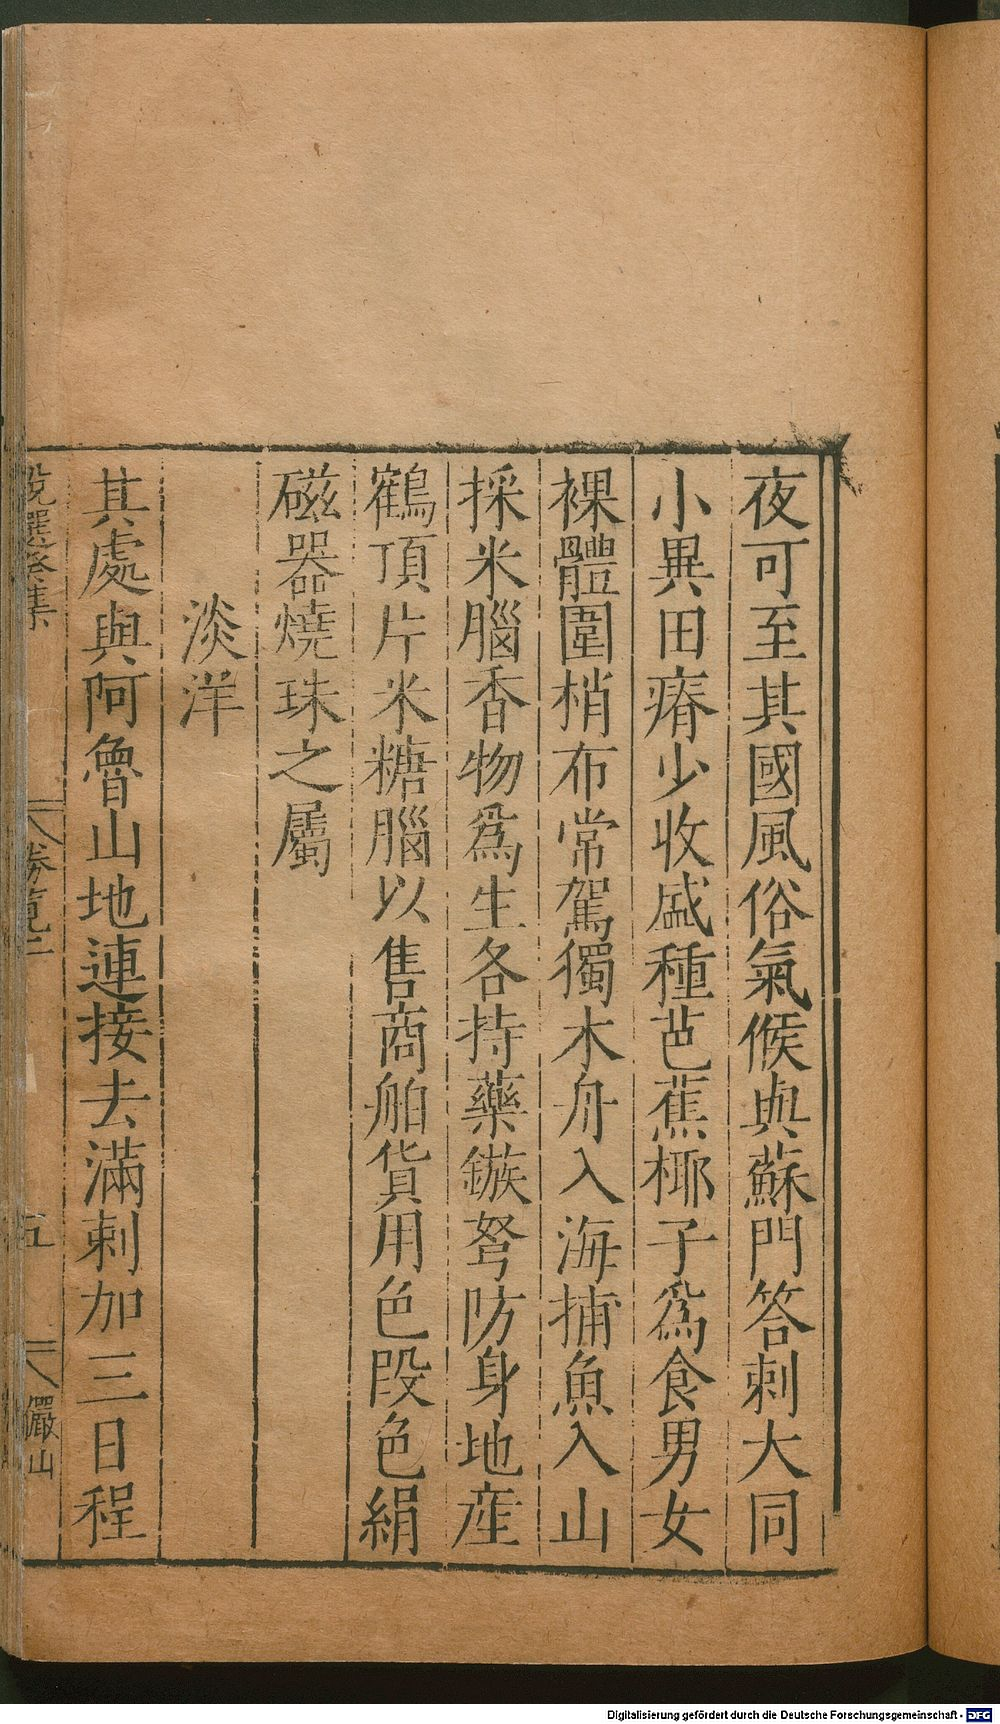 夜可至其國風俗氣候與蘇門答剌大同
小異田瘠少收盛種芭蕉椰子爲食男女
裸體圍梢布常駕獨木舟入海捕魚入山
採米腦香物爲生各持藥鏃弩防身地產
鶴頂片米糖腦以售商舶貨用色段色絹
磁器燒珠之屬
淡洋
其處與阿魯山地連接去滿剌加三日程
勝覽
五
儼山
Digitalisierung gefördert durch die Deutsche Forschungsgemeinschaft - DFG